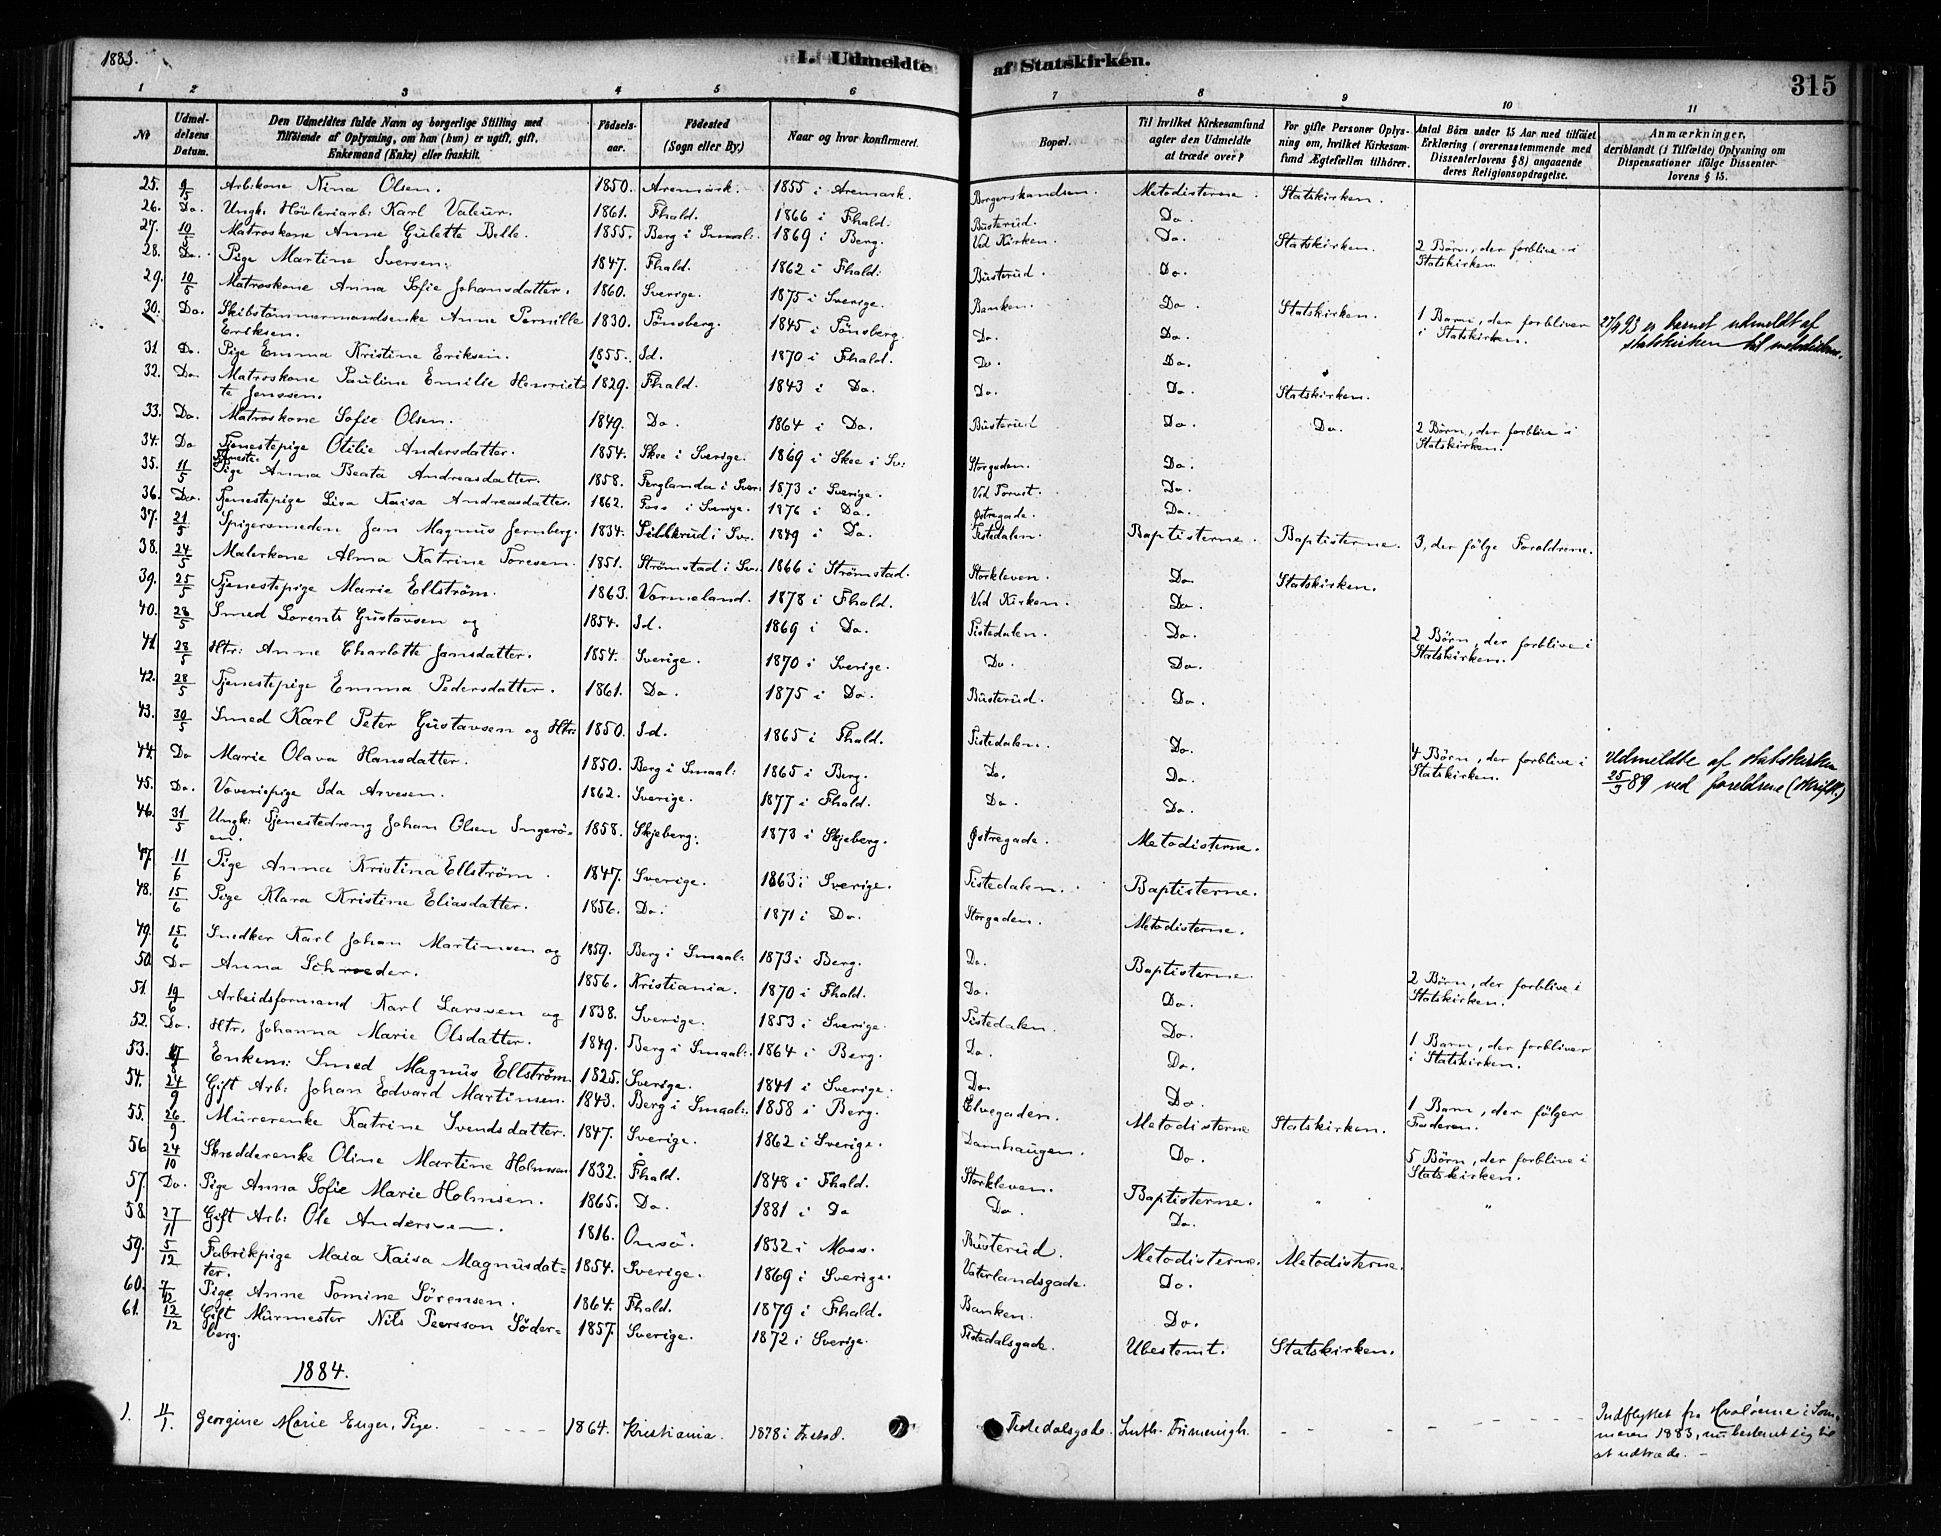 1883.
I. Udmeldte af Statskirken.
315
1 2 3 4 5 6 7 8 9 10 11
No
Udmeldelsens Datum.
Den Udmeldtes fulde Navn og borgerlige Stilling med Tilføiende af Oplysning, om han (hun) er ugift, gift, Enkemand (Enke) eller fraskilt.
Fødselsaar.
Fødested (Sogn eller By.)
Naar og hvor konfirmeret.
Bopæl.
Til hvilket Kirkesamfund agter den Udmeldte at træde over?
For gifte Personer Oplysning om, hvilket Kirkesamfund Ægtefællen tilhører.
Antal Børn under 15 Aar med tilføiet Erklæring (overensstemmende med Dissenterlovens § 8) angaaende deres Religionsopdragelse.
Anmærkninger, deriblandt (i Tilfælde) Oplysning om Dispensationer ifølge Dissenterlovens § 15.
25. 9/5 Arb.kone Nina Olsen. 1850. Aremark. 1855 i Aremark. Metodisterne. Statskirken.
26. Do. Ungk. Høvleriarb: Karl Valeur. 1861. Fhald. 1866 i Fhald. Busterud. Do.
27. 10/5 Matroskone Anne Gulette Belle. 1855. Berg i Smaal: 1869 i Berg. Ved Kirken. Do. Statskirken. 2 Børn, der forblive i Statskirken.
28. Do. Pige Martine Iversen. 1847. Fhald. 1862 i Fhald. Busterud. Do.
29. 10/5 Matroskone Anna Sofie Johansdatter. 1860. Sverige. 1875 i Sverige. Banken. Do. Statskirken. 1 Barn, der forbliver i Statskirken. 93 er barnet udmeldt af statskirken til metodisterne.
30. Do. Skibstømmermandsenke Anne Pernille Eriksen. 1830. Tønsberg. 1845 i Tønsberg. Do. Do.
31 Do. Pige Emma Kristine Eriksen. 1855. Id. 1870 i Fhald. Do. Do.
32. Do. Matroskone Pauline Emilie Henriette Jenssen. 1829. Fhald. 1843 i Do. Do. Do. Statskirken.
33. Do. Matroskone Sofie Olsen. 1849. Do. 1864 i Do. Busterud Do. Do. 2 Børn, der forblive i Statskirken.
34. Do Tjenestepige Otilie Andersdatter. 1854. Skee i Sverige. 1869 i Skee i Sv: Storgaden. Do.
35. 11/5 Tjeneste Pige Anna Beata Andreasdatter. 1858. Ferglanda i Sver: 1873 i Sverige. Ved Torvet. Do.
36. Do. Tjenestepige Lisa Kaisa Andreasdatter. 1862. Foss i Sverige. 1876 i Do. Østregade. Do.
37. 21/5 Spigersmeden Jan Magnus Jernberg. 1834. i Sv. 1849 i Do. Tistedalen. Baptisterne. Baptisterne. 3, der følge Forældrene.
38. 24/5 Malerkone Alma Katrine Toresen. 1851. Strømstad i Sv. 1866 i Strømstad. Storkleven. Do. Statskirken.
39. 25/5 Tjenestepige Marie Ellström. 1863. Vermeland. 1878 i Fhald. Ved Kirken. Do.
40. 28/5 Smed Lorents Gustavsen og 1854. Id. 1869 i Do. Tistedalen. Do. 2 Børn, der forblive i Statskirken.
41. 28/5 Htr: Anne Charlotte Jansdatter. 1854. Sverige. 1870 i Sverige. Do. Do.
42. 28/5 Tjenestepige Emma Pedersdatter. 1861. Do. 1875 i Do. Busterud. Do.
43. 30/5 Smed Karl Peter Gustavsen og Htr: 1850. Id. 1865 i Fhald. Tistedalen. Do. 4 Børn, der forblive i Statskirken. Udmeldte af statskirken 25/3 89 ved foreldrene (skriftl.)
44. Do Marie Olava Hansdatter. 1850. Berg i Smaal: 1865 i Berg. Do. Do.
45. Do. Væveripige Ida Arvesen. 1862. Sverige. 1877 i Fhald. Do. Do.
46. 31/5 Ungk: Tjenestedreng Johan Olsen Ingerøen. 1858. Skjeberg. 1873 i Skjeberg. Østregade. Metodisterne.
47. 11/6 Pige Anna Kristina Ellström. 1847. Sverige. 1863 i Sverige. Tistedalen. Baptisterne.
48. 15/6 Pige Klara Kristine Eliasdatter. 1856. Do. 1871 i Do. Storgaden. Metodisterne.
49. 15/6 Snedker Karl Johan Martinsen og 1859. Berg i Smaal: 1873 i Berg. Do. Baptisterne. 2 Børn, der forblive i Statskirken.
50. Do Anna Schrøder. 1856. Kristiania. 1870 i Fhald. Do. Do.
51. 19/6 Arbeidsformand Karl Larssen og 1838. Sverige. 1853 i Sverige. Tistedalen. Do. 1 Barn, der forbliver i Statskirken.
52. Do. Htr. Johanna Marie Olsdatter. 1849. Berg i Smaal: 1864 i Berg. Do. Do.
53. Enkem: Smed Magnus Ellström. 1825. Sverige. 1841 i Sverige. Do. Do.
54. 24/9 Gift Arb: Johan Edvard Martinsen. 1843. Berg i Smaal: 1858 i Berg. Elvegaden. Metodisterne Statskirken. 1 Barn, der følger Faderen.
55. 26/9 Murerenke Katrine Svendsdatter. 1847. Sverige. 1862 i Sverige. Damhaugen. Do. 5 Børn, der forblive i Statskirken.
56 24/10 Skrædderenke Oline Martine Holmsen 1832. Fhald. 1848 i Fhald. Storkleven. Baptisterne. " "
57. Do. Pige Anna Sofie Marie Holmsen. 1865. Do. 1881 i Do Do. Do.
58. 27/11 Gift Arb: Ole Anderssen. 1816. Onsø. 1832 i Moss. Busterud. Metodisterne. Metodisterne.
59. 5/12 Fabrikpige Maia Kaisa Magnusdatter. 1854. Sverige. 1869 i Sverige. Vaterlandsgade. Do.
60. 7/12 Pige Anne Tomine Sørensen. 1864. Fhald. 1879 i Fhald. Banken. Do.
61. 12/12 Gift Murmester Nils Peersson Søderberg. 1857. Sverige. 1872 i Sverige. Tistedalsgade. Ubestemt. Statskirken.
1884.
1. 11/1. Georgine Marie Enger, Pige. 1864. Kristiania. 1878 i Tistedalsgade. Luth. Frimenigh. Indflyttet fra Hvaløerne i Sommeren 1883, nu bestemt sig til at udtræde.